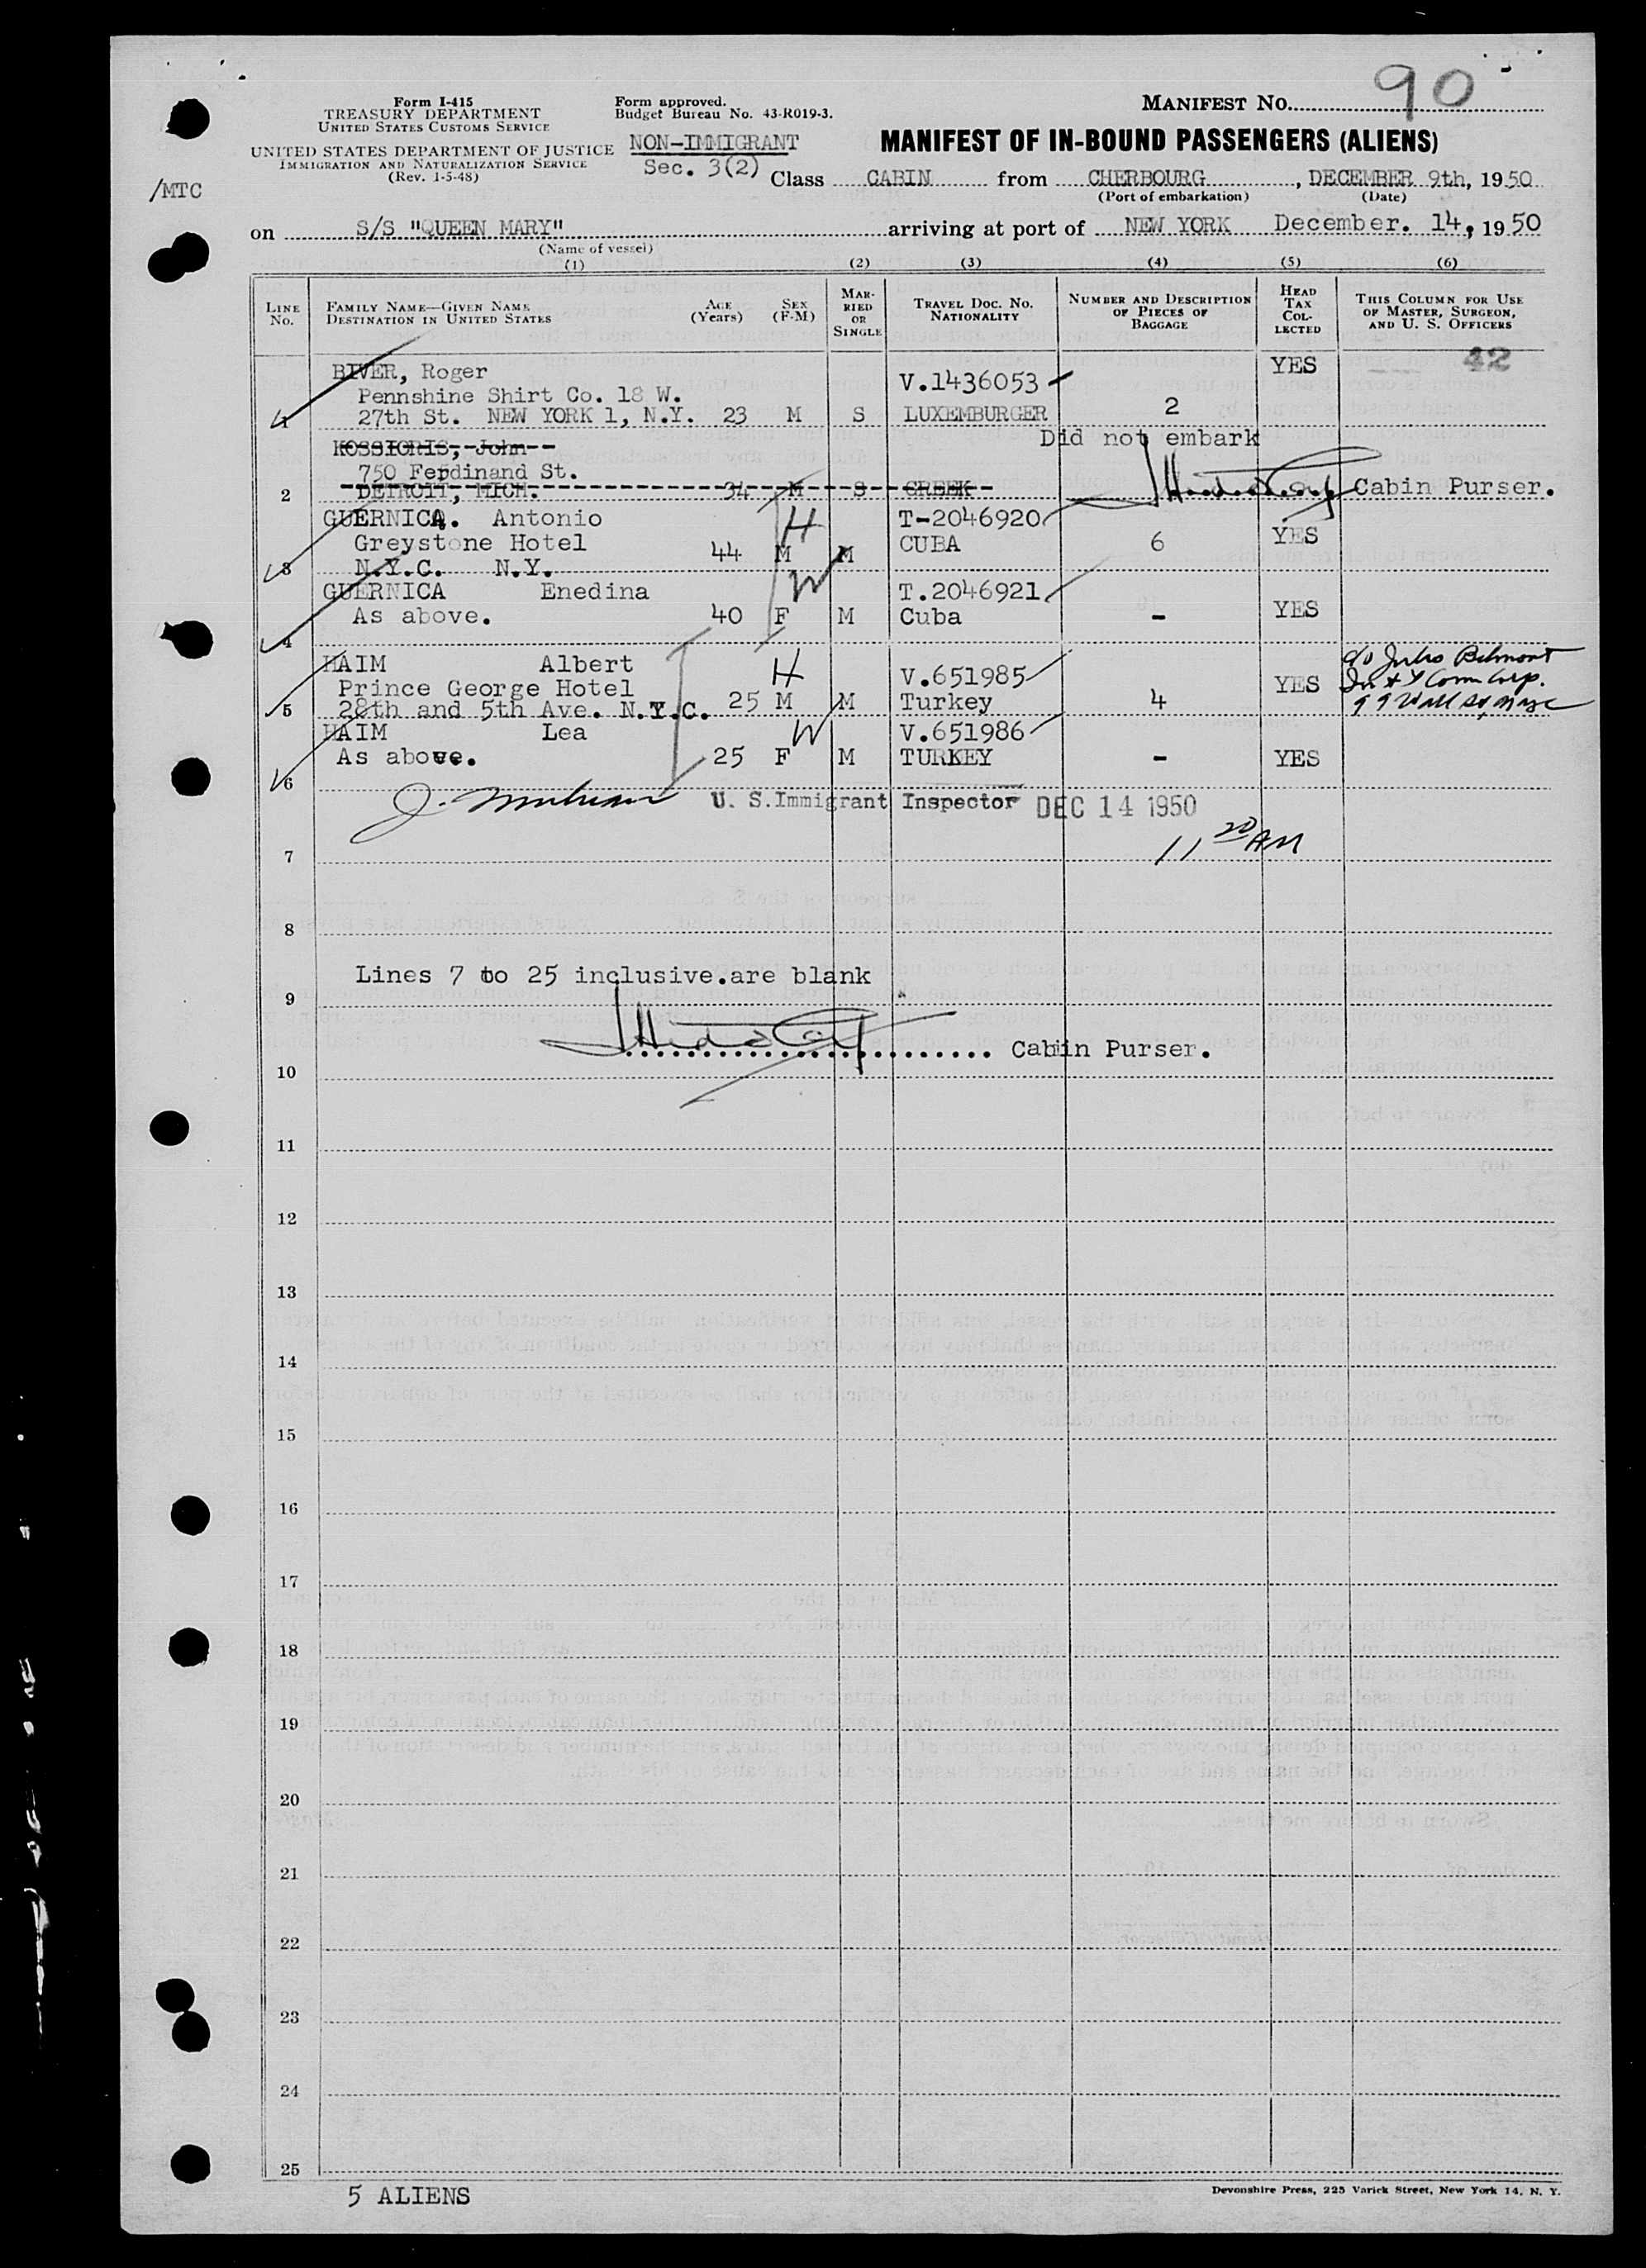 Form I-415
TREASURY DEPARTMENT
UNITED STATES CUSTOMS SERVICE
UNITED STATES DEPARTMENT OF JUSTICE
IMMIGRATION AND NATURALIZATION SERVICE
(Rev. 1-5-48)
/MTC
Form approved.
Budget Bureau No. 43-R019-3.
NON-IMMIGRANT
Sec. 3(2)
MANIFEST NO. 90
MANIFEST OF IN-BOUND PASSENGERS (ALIENS)
Class CABIN from CHERBOURG, DECEMBER 9th, 1950
(Port of embarkation) (Date)
on S/S "QUEEN MARY" arriving at port of NEW YORK December. 14, 1950
(Name of vessel)
(1) (2) (3) (4) (5) (6)
LINE NO. FAMILY NAME—GIVEN NAME DESTINATION IN UNITED STATES AGE (Years) SEX (F-M) MARRIED OR SINGLE TRAVEL DOC. NO. NATIONALITY NUMBER AND DESCRIPTION OF PIECES OF BAGGAGE HEAD TAX COLLECTED THIS COLUMN FOR USE OF MASTER, SURGEON, AND U. S. OFFICERS
BIVER, Roger YES 42
Pennshine Shirt Co. 18 W. V.1436053
1 27th St. NEW YORK 1, N.Y. 23 M S LUXEMBURGER 2
KOSSIORIS, John Did not embark
750 Ferdinand St.
2 DETROIT, MICH. 34 M S GREEK Cabin Purser.
GUERNICA. Antonio H T-2046920
Greystone Hotel 44 M M CUBA 6 YES
3 N.Y.C. N.Y.
GUERNICA Enedina W T.2046921
As above. 40 F M Cuba - YES
4
HAIM Albert H V.651985 c/o Jules Belmont
Prince George Hotel YES Corp.
5 28th and 5th Ave. N.Y.C. 25 M M Turkey 4 99 Wall St NYC
HAIM Lea W V.651986
As above. 25 F M TURKEY - YES
6
U. S. Immigrant Inspector DEC 14 1950
11 20 AM
7
8
Lines 7 to 25 inclusive.are blank
9
Cabin Purser.
10
11
12
13
14
15
16
17
18
19
20
21
22
23
24
25
5 ALIENS
Devonshire Press, 225 Varick Street, New York 14, N. Y.